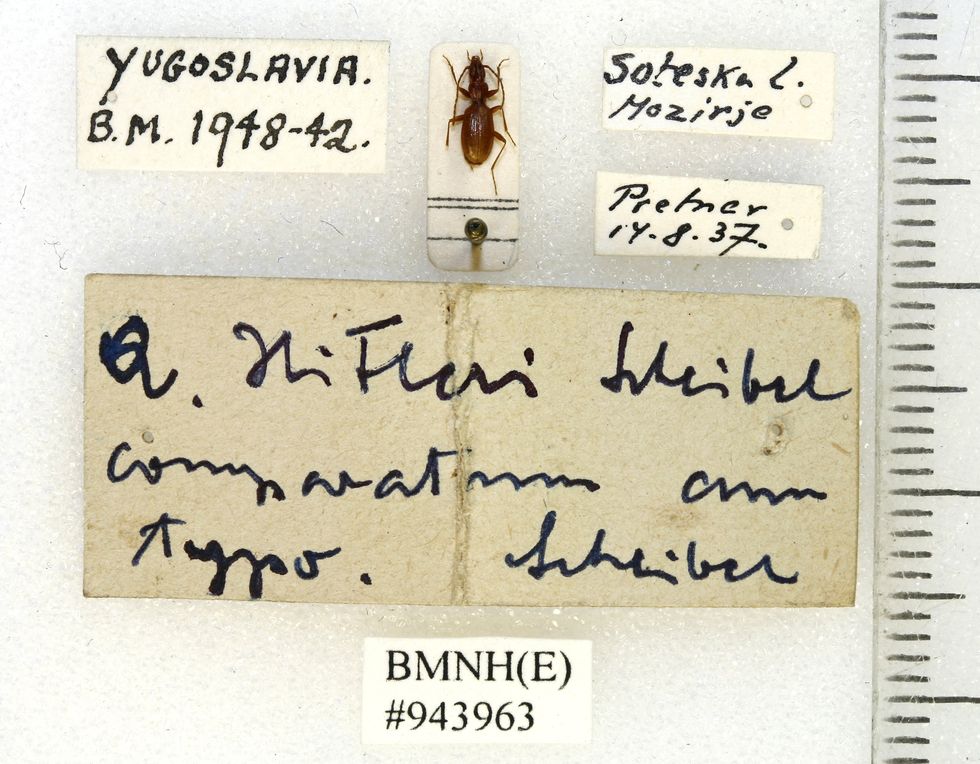 YUGOSLAVIA.
B.M. 1948-42.
Soteska l.
Mozirje
Pretner
14.8.37.
A. Hitleri Scheibel
comparatum cum
typo. Scheibel
BMNH(E)
#943963